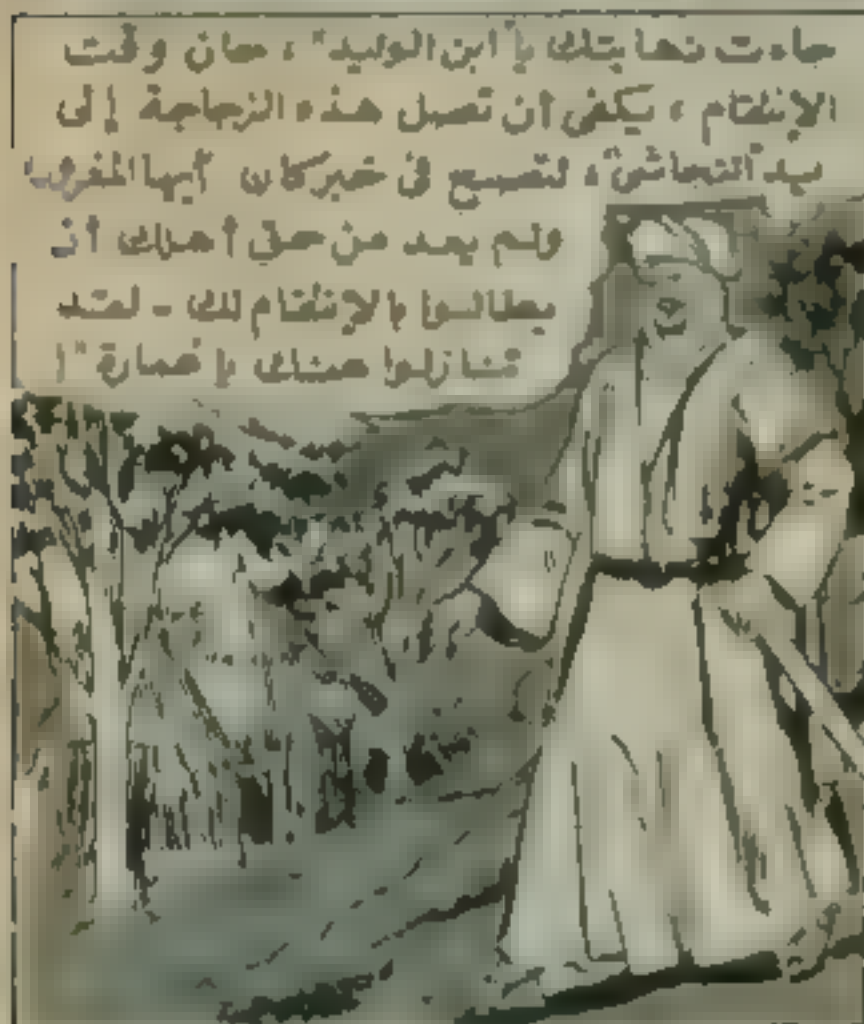 جاءت نهايتك يا"ابن الوليد" ، حان وقت
الإنتقام ، يكفى أن تصل هذه الزجاجة إلى
يد"النجاشى"، لتصبح فى خبركان أيها المغرور
ولم يعد من حق أهلك أن
يطالبوا بالإنتقام لك - لقد
تنازلوا عنك يا"عمارة"!